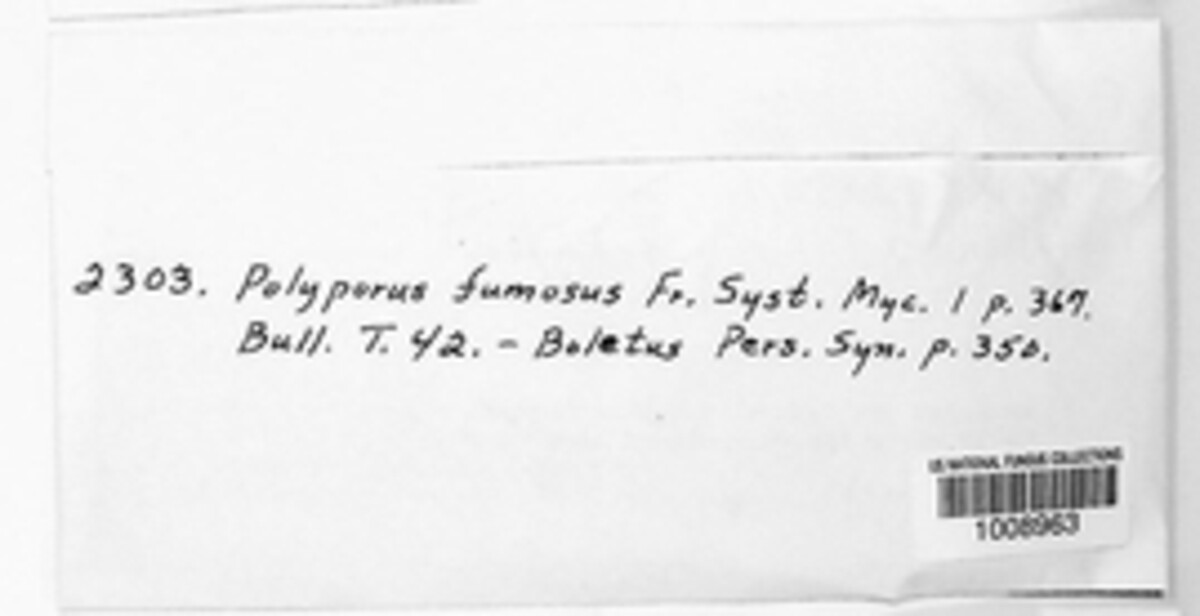 2303. Polyporus fumosus Fr. Syst. Myc. 1 p. 367.
Bull. T. 42. - Boletus Pers. Syn. p. 350.
US NATIONAL FUNGUS COLLECTIONS
1008963